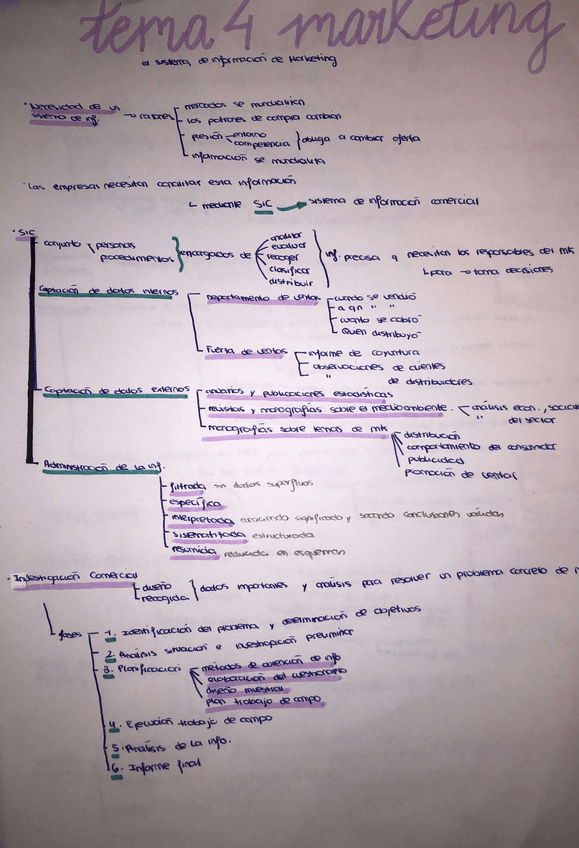 tema 4 marketing
el sistema de información de Marketing
· Necesidad de un sistema de inf. → razones
mercados se mundializan
los patrones de compra cambian
presión entorno competencia } obliga a cambiar oferta
información se mundializa
· Las empresas necesitan canalizar esta información
↳ mediante SIC → sistema de información comercial
· SIC
conjunto personas procedimientos } encargados de
analizar
evaluar
recoger
clasificar
distribuir
inf. precisa q necesitan los responsables del mk
↳ para → toma decisiones
Captación de datos internos
Departamento de ventas
cuando se vendió
a qn " "
cuanto se cobró
Quien distribuyó
Fuerza de ventas
informe de coyuntura
observaciones de clientes
" de distribuidores
Captación de datos externos
anuarios y publicaciones estadísticas
revistas y monografías sobre el medioambiente. análisis econ., social
" del sector
monografías sobre temas de mk
distribución
comportamiento del consumidor
publicidad
promoción de ventas
Administración de la inf.
filtrada sin datos superfluos
específica
interpretada conociendo significado y sacando conclusiones válidas
sistematizada estructurada
resumida reducida en esquemas
· Investigación Comercial
diseño
recogida } datos importantes y análisis para resolver un problema concreto de
fases
1. Identificación del problema y determinación de objetivos
2. Análisis situación e investigación preliminar
3. Planificación
métodos de obtención de info
elaboración del cuestionario
diseño muestral
plan trabajo de campo
4. Ejecución trabajo de campo
5. Análisis de la info.
6. Informe final